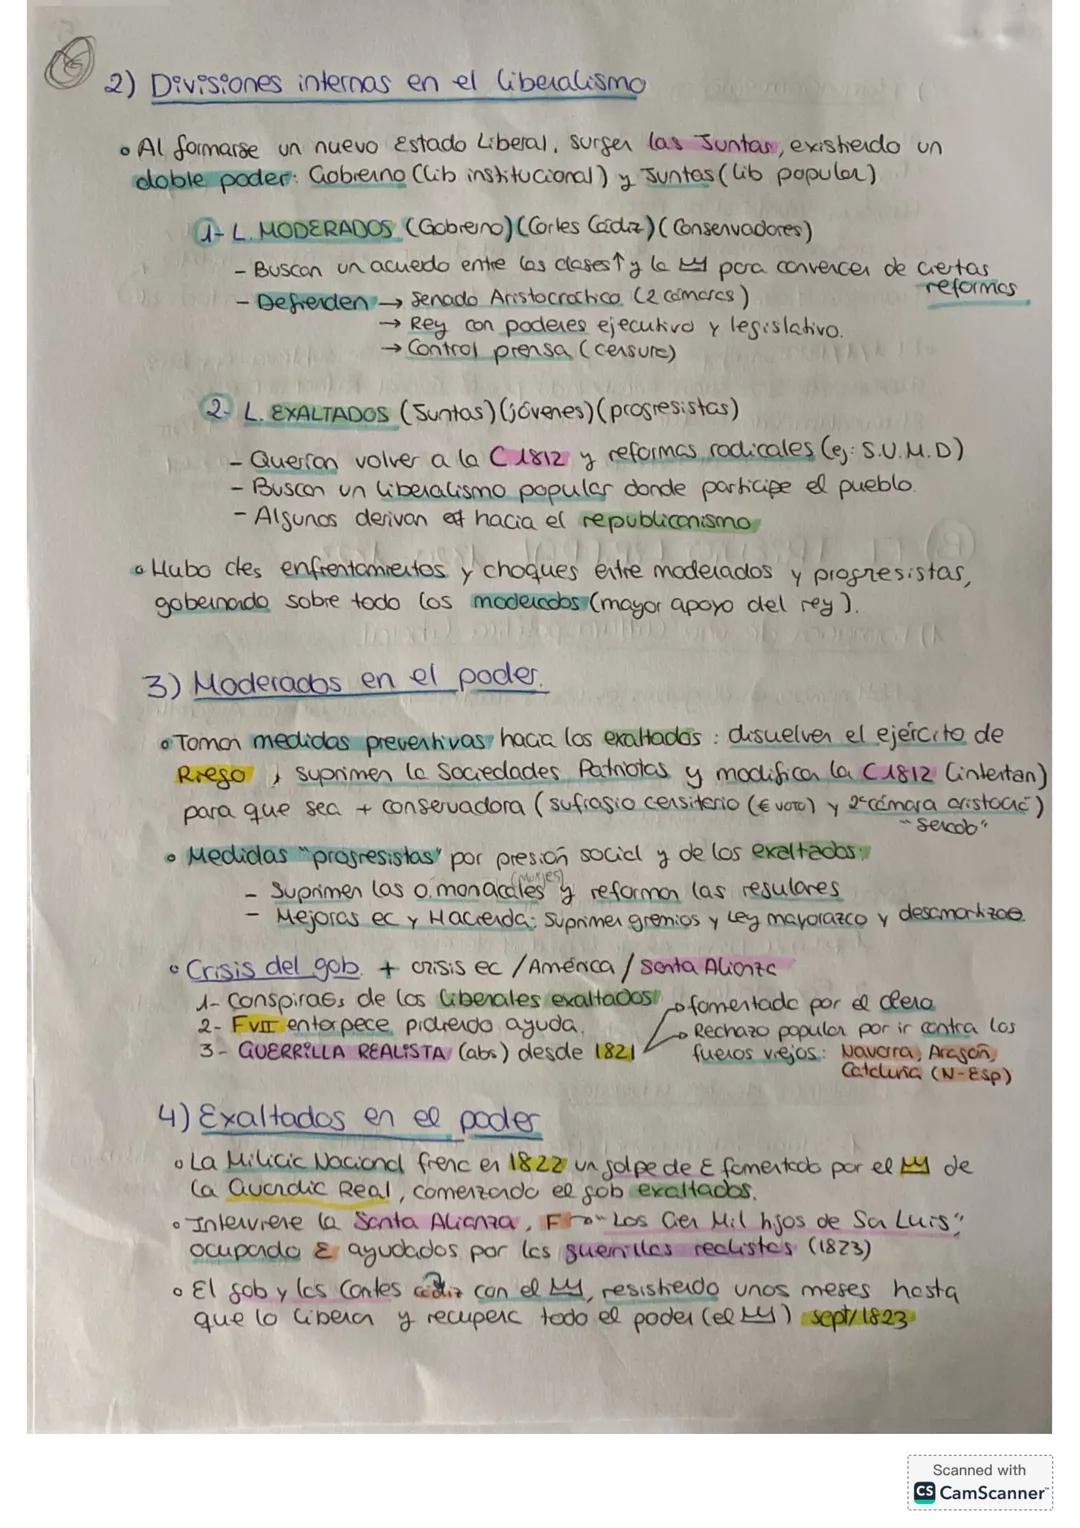 2) Divisiones internas en el liberalismo
• Al formarse un nuevo Estado Liberal, surgen las Juntas, existiendo un
doble poder: Gobierno (lib institucional) y Juntas (lib popular)
1- L. MODERADOS (Gobierno) (Cortes Cádiz) (Conservadores)
- Buscan un acuerdo entre las clases↑ y la 👑 para convencer de ciertas
reformas
- Defienden → Senado Aristocrático (2 cámaras)
→ Rey con poderes ejecutivo y legislativo.
→ Control prensa (censura)
2- L. EXALTADOS (Juntas) (jóvenes) (progresistas)
- Querían volver a la C 1812 y reformas radicales (ej: S.U.M.D)
- Buscan un liberalismo popular donde participe el pueblo.
- Algunos derivan hacia el republicanismo
• Hubo enfrentamientos y choques entre moderados y progresistas,
gobernando sobre todo los moderados (mayor apoyo del rey).
3) Moderados en el poder.
• Toman medidas preventivas hacia los exaltados: disuelven el ejército de
Riego, suprimen la Sociedades Patriotas y modifican la C1812 (intentan)
para que sea + conservadora (sufragio censitario (€ voto) y 2ª cámara aristocrá)
"Senado"
• Medidas "progresistas" por presión social y de los exaltados:
(Monjes)
- Suprimen las o. monacales y reforman las regulares
- Mejoras ec y Hacienda: Suprimen gremios y Ley mayorazco y
• Crisis del gob. + crisis ec / América / Santa Alianza
1- Conspiraεs de los liberales exaltados
2- FVII entorpece pidiendo ayuda.
3- GUERRILLA REALISTA (abs) desde 1821
→ fomentada por el clero
→ Rechazo popular por ir contra los
fueros viejos: Navarra, Aragón,
Cataluña (N-Esp)
4) Exaltados en el poder
• La Milicia Nacional frena en 1822 un golpe de E fomentado por el 👑 de
la Guardia Real, comenzando el gob exaltados.
• Interviene la Santa Alianza, F → "Los Cien Mil hijos de San Luis"
ocupando E ayudados por las guerrillas realistas (1823)
• El gob y las Cortes cádiz con el 👑, resistiendo unos meses hasta
que lo liberan y recupera todo el poder (el 👑) sept/1823
Scanned with
CS CamScanner™